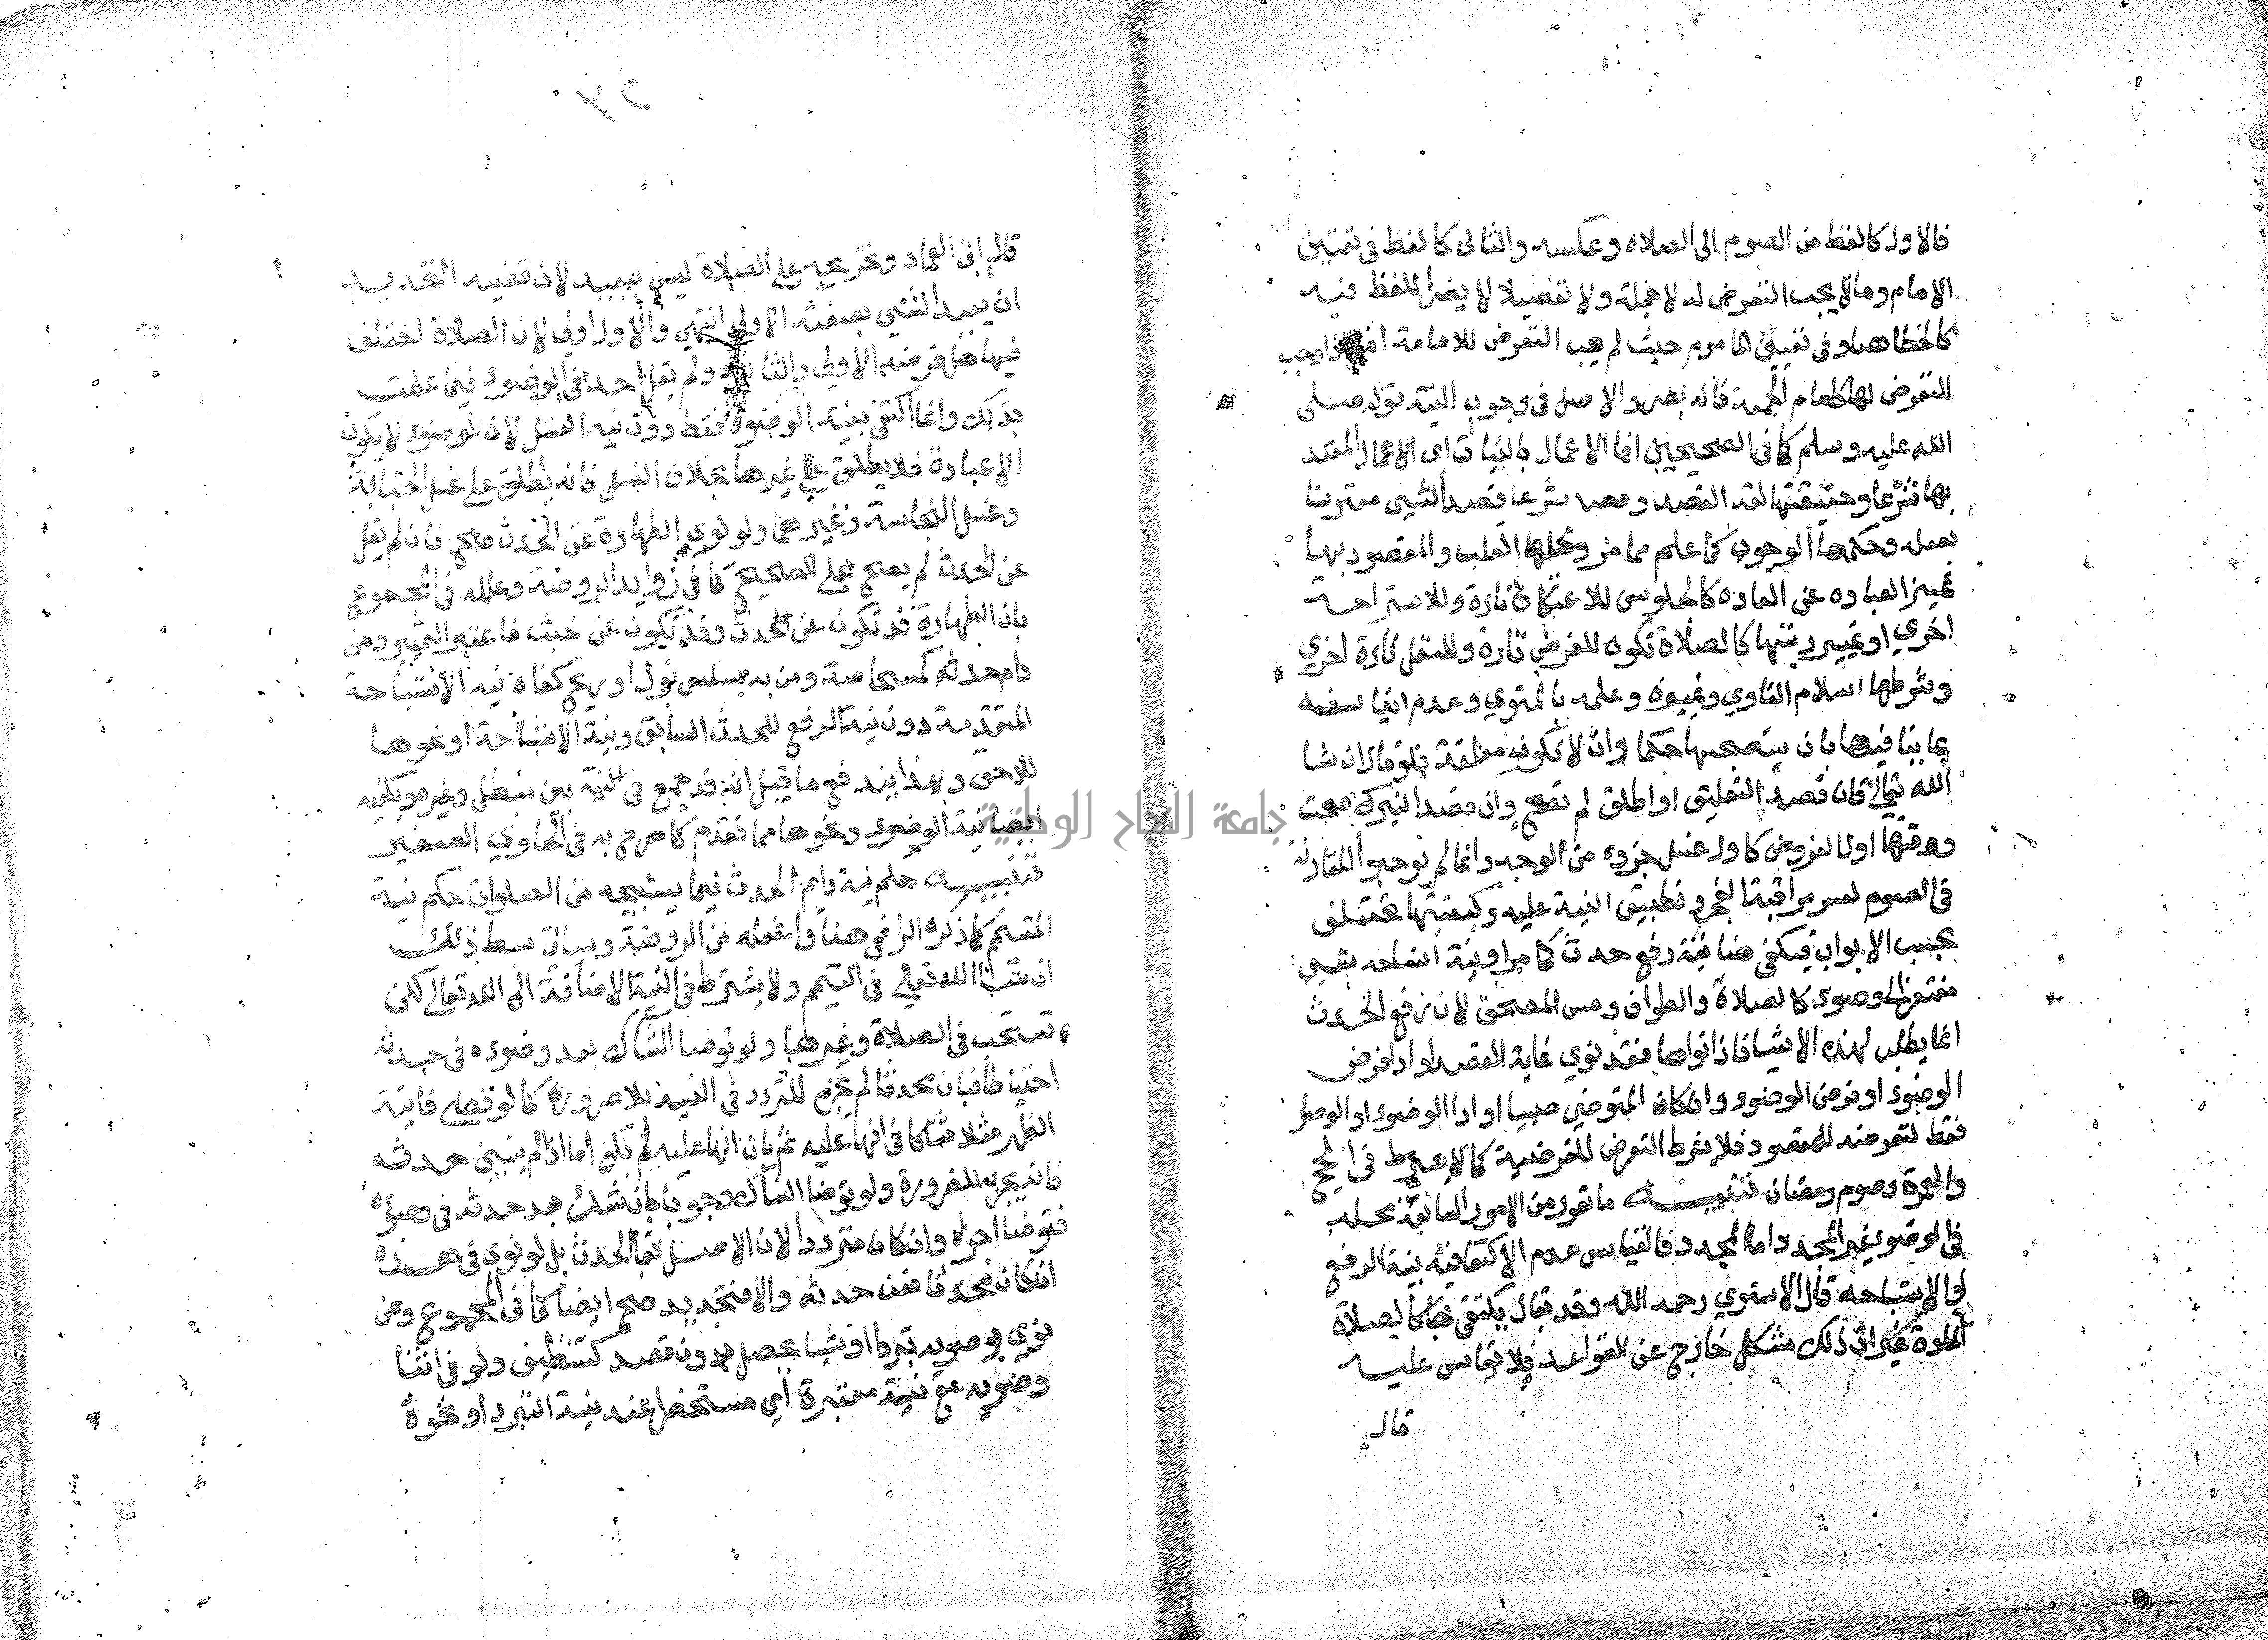 فالاول كالغلط من الصوم الى الصلاه وعكسه والثانى كالغلط فى تعيين
الامام ومالايجب التعرض له لاجملة ولا تفصيلا لا يضر الغلط فيه
كالخطا هنا وفى تعيين الماموم حيث لم يجب التعرض للامامة اما اذا وجب
التعرض لها كامام الجمعة فانه يضر والاصل فى وجوب النية قوله صلى
الله عليه وسلم كما فى الصحيحين انما الاعمال بالنيات اى الاعمال المعتد
بها شرعا وحقيقتها لغة القصد وشرعا قصد الشيى مقترنا
بفعله وحكمها الوجوب كما علم مما مر ومحلها القلب والمقصود بها
تمييز العباده عن العاده كالجلوس للاعتكاف تارة وللاستراحة
اخري او تمييز رتبتها كالصلاة تكون للفرض تارة وللنفل تارة اخري
وشرطها اسلام الناوي وتمييزه وعلمه بالمنوي وعدم اتيانه
بما ينافيها بان يستصحبها حكما وان لا تكون معلقة فلو قال ان شا
الله تعالى فان قصد التعليق او اطلق لم تصح وان قصد التبرك صحت
ووقتها اول الفروض كاول غسل جزء من الوجه وانما لم يوجبوا المقارنة
فى الصوم لعسر مراقبة الفجر وتطبيق النية عليه وكيفيتها تختلف
بحسب الابواب فيكفى هنا نية رفع حدث كما مر او نية استباحه شيى
مفتقر الى وضوء كالصلاة والطواف ومس المصحف لان رفع الحدث
انما يطلب لهذه الاشيا فاذا نواها فقد نوي غاية القصد او ادا فرض
الوضوء او فرض الوضوء وان كان المتوضى صبيا او ادا الوضوء او الوضو
فقط لتعرضه للمقصود فلا يشترط التعرض للفرضية كما لا يشترط فى الحج
والعمرة وصوم رمضان تنبيه ما تقرر من الامور السابقة محله
فى الوضوء غير المجدد اما المجدد فالقياس عدم الاكتفا فيه بنية الرفع
او الاستباحه قال الاسنوي رحمه الله وقد يقال يكتفى بها كالصلاة
المعادة غير ان ذلك مشكل خارج عن القواعد فلا يقاس عليه
قال
٢٣
قال ابن العماد وتخريجه على الصلاة ليس ببعيد لان قضيه التجديد
ان يعيد الشيى بصفته الاولى انتهي والاول اولي لان الصلاة اختلف
فيها هل فرضه الاولي والثانية ولم يقل احد فى الوضوء فيما علمت
بذلك وانما اكتفى بنية الوضوء فقط دون نية الغسل لان الوضوء لا يكون
الا عبادة فلا يطلق على غيرها بخلاف الغسل فانه يطلق على غسل الجنابة
وغسل النجاسة وغيرهما ولو نوي الطهارة عن الحدث صح فان لم يقل
عن الحدث لم يصح على الصحيح كما فى زوايد الروضة وعلله فى المجموع
بان الطهارة قد تكون عن الحدث وقد تكون عن خبث فاعتبر التمييز ومن
دام حدثه كمستحاضة ومن به سلس بول او ريح كفاه نيه الاستباحة
المتقدمة دون نية الرفع للحدث السابق ونية الاستباحة او نحوها
للاحق وبهذا يندفع ما قيل انه قد جمع فى النية بين مبطل وغيره ويكفيه
ايضا نية الوضوء ونحوها مما تقدم كما صرح به فى الحاوي الصغير
تنبيه حكم نية دايم الحدث فيما يستبيحه من الصلوات حكم نية
المتيمم كما ذكره الرافعى هنا واغفله من الروضة وسياتى بسط ذلك
ان شا الله تعالى فى التيمم ولا يشترط فى النية الاضافة الى الله تعالى لكن
تستحب فى الصلاة وغيرها ولو توضا الشاك بعد وضوءه فى حدثه
احتياطا فبان محدثا لم يجزه للتردد فى النية بلا ضرورة كما لو قضى فايتة
الظهر مثلا شاكا فى انها عليه ثم بان انها عليه لم تكف اما اذا لم يتبين حدثه
فانه يجزيه للضرورة ولو توضا الشاك وجوبا بان شك بعد حدثه فى وضوءه
فتوضا اجزاه وان كان مترددا لان الاصل بقا الحدث بل لو نوى فى هذه
ان كان محدثا فعن حدثه والا فتجديد صح ايضا كما فى المجموع ومن
نوي بوضويه تبردا او شيا يحصل بدون قصد كتنظيف ولو فى اثنا
وضويه مع نية معتبرة اي مستحضرا عند نية التبرد او نحوه
جامعة النجاح الوطنية